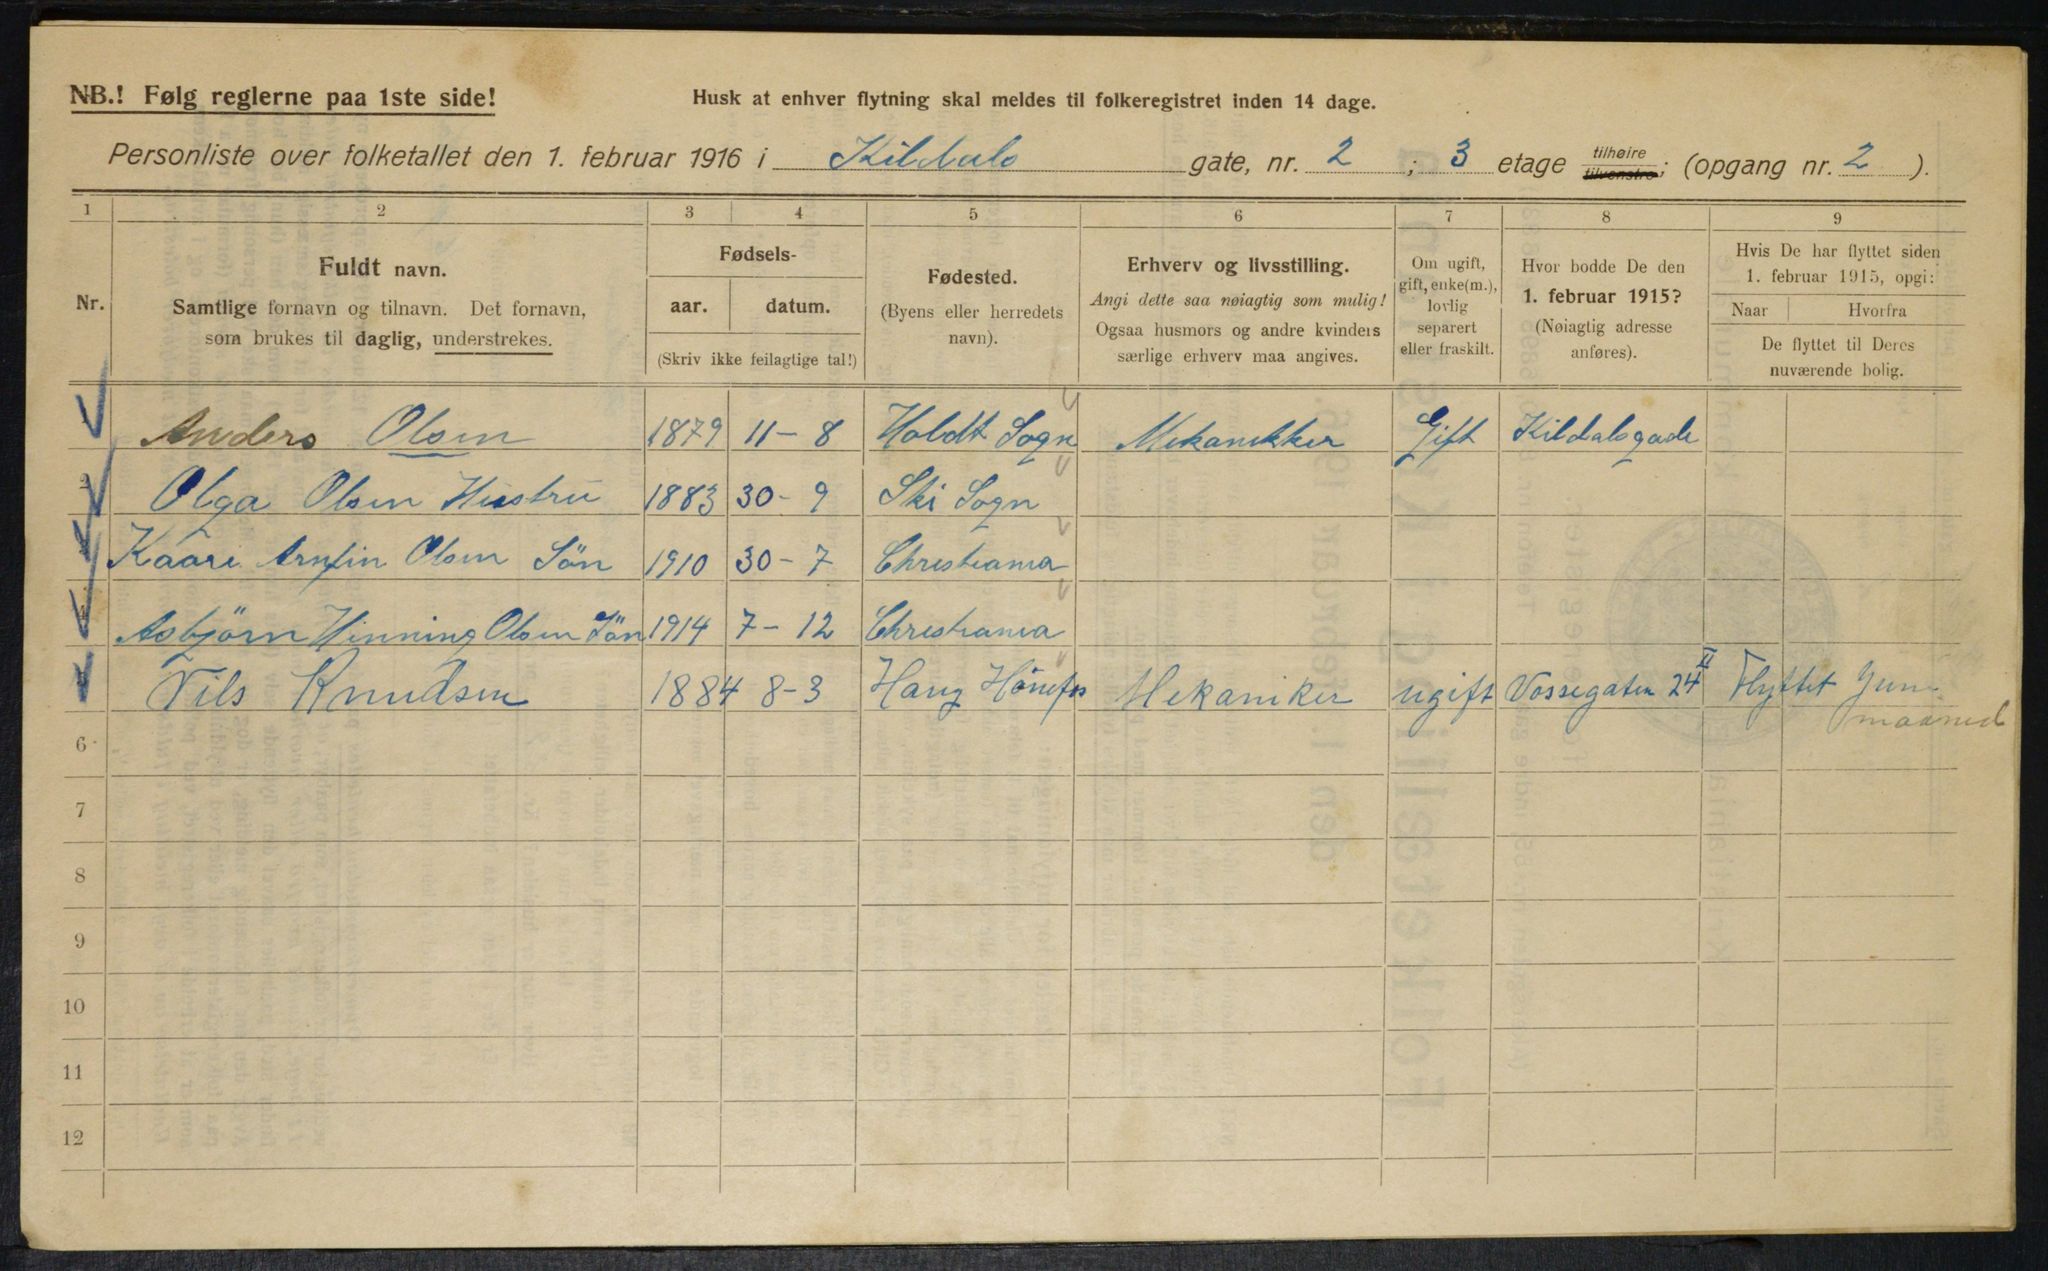 NB.! Følg reglerne paa 1ste side! Husk at enhver flytning skal meldes til folkeregistret inden 14 dage.
Personliste over folketallet den 1. februar 1916 i Kildals gate, nr. 2 ; 3 etage tilhøire tilvenstre; (opgang nr. 2 ).
1 2 3 4 5 6 7 8 9
Nr. Fuldt navn. Samtlige fornavn og tilnavn. Det fornavn, som brukes til daglig, understrekes.
Fødsels- aar. datum. (Skriv ikke feilagtige tal!)
Fødested. (Byens eller herredets navn).
Erhverv og livsstilling. Angi dette saa nøiagtig som mulig! Ogsaa husmors og andre kvinders særlige erhverv maa angives.
Om ugift, gift, enke(m.), lovlig separert eller fraskilt.
Hvor bodde De den 1. februar 1915? (Nøiagtig adresse anføres).
Hvis De har flyttet siden 1. februar 1915, opgi: Naar Hvorfra De flyttet til Deres nuværende bolig.
Anders Olsen 1879 11-8 Holdt Sogn Mekanikker Gift Kildalsgade
2 Olga Olsen Hustru 1883 30-9 Ski Sogn
Kaare Arnfin Olsen Sön 1910 30-7 Christiania
Asbjörn Hinning Olsen Sön 1914 7-12 Christiania
Nils Knudsen 1884 8-3 Haug Hönefos Mekaniker ugift Vossegaten 24 II Flyttet Juni
maaned
6
7
8
9
10
11
12